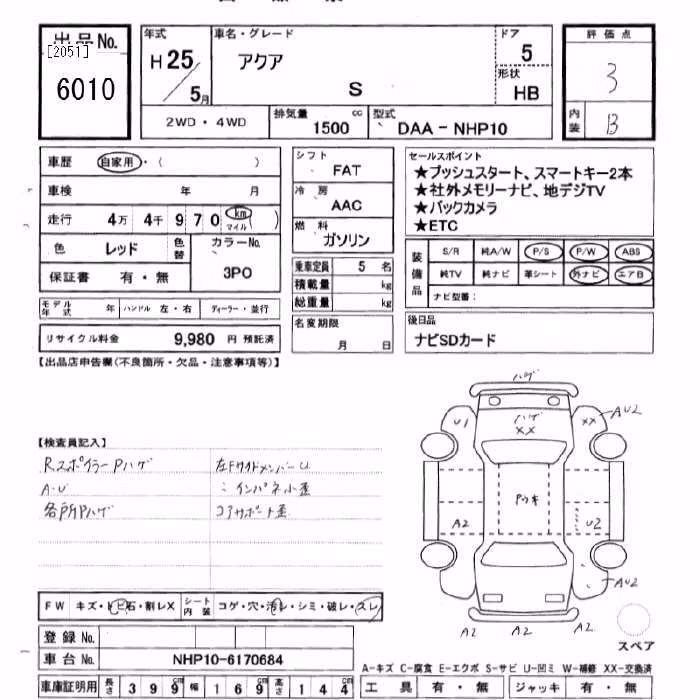 出品No.
[2051]
6010
年式
H25/5月
車名・グレード
アクア
S
ドア
5
形状
HB
2WD・4WD
排気量 cc
1500
型式
DAA-NHP10
評価点
3
内装
B
車歴 自家用・( )
車検 年 月
走行 4万 4千 9 7 0 km マイル )
色 レッド 色替 カラーNo.
3P0
保証書 有・無
モデル年式 年 ハンドル 左・右 ディーラー・並行
リサイクル料金 9,980 円 預託済
シフト
FAT
冷房
AAC
燃料
ガソリン
乗車定員 5 名
積載量 kg
総重量 kg
名変期限
月 日
セールスポイント
★プッシュスタート、スマートキー2本
★社外メモリーナビ、地デジTV
★バックカメラ
★ETC
装備品
S/R 純A/W P/S P/W ABS
純TV 純ナビ 革シート 外ナビ エアB
ナビ型番:
後日品
ナビSDカード
【出品店申告欄(不良箇所・欠品・注意事項等)】
【検査員記入】
Rスポイラー Pハゲ
A・U
各所Pハゲ
左FサイドメンバーU
〃 インパネ小歪
コアサポート歪
ハゲ
U1
ハゲ
XX
XX
AU2
Pウキ
A2
U2
AU2
A2
A2
A2
スペア
FW キズ・トビ石・割レX シート内装 コゲ・穴・汚レ・シミ・破レ・スレ
登録No.
車台No. NHP10-6170684
車庫証明用 長さ 399cm 幅 169cm 高さ 144cm
A-キズ C-腐食 E-エクボ S-サビ U-凹ミ W-補修 XX-交換済
工具 有・無 ジャッキ 有・無